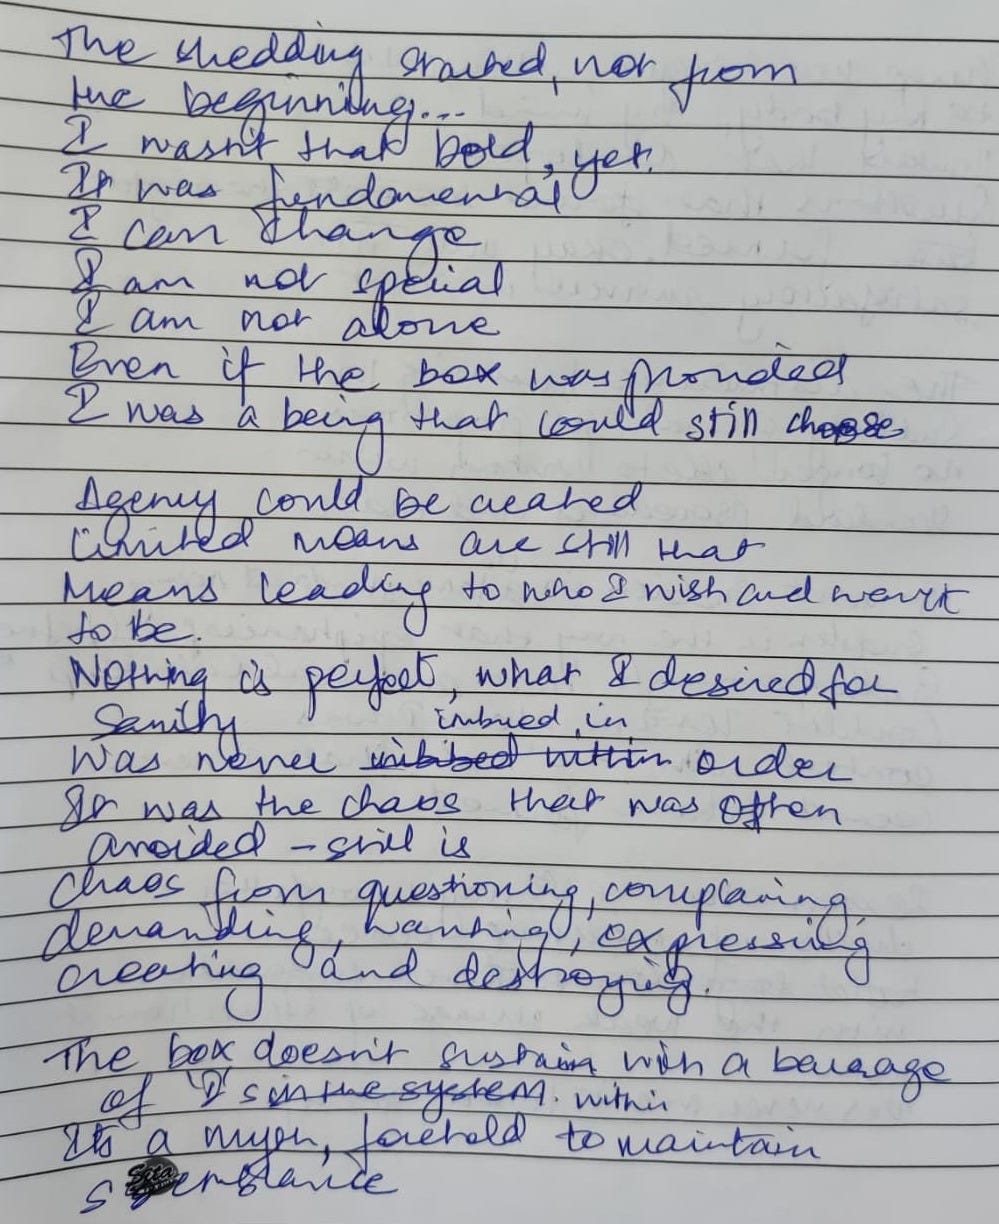 The shedding started, not from
the beginning...
I wasn't that bold, yet.
It was fundamental
I can change
I am not special
I am not alone
Even if the box was provided
I was a being that could still choose
Agency could be created
Limited means are still that
Means leading to who I wish and want
to be.
Nothing is perfect, what I desired for
Sanity imbued in
was never imbibed within order
It was the chaos that was often
avoided – still is
Chaos from questioning, complaining,
demanding, wanting, expressing
creating and destroying.
The box doesn't sustain with a barrage
of 'I's in the system. within
Its a myth, foretold to maintain
semblance